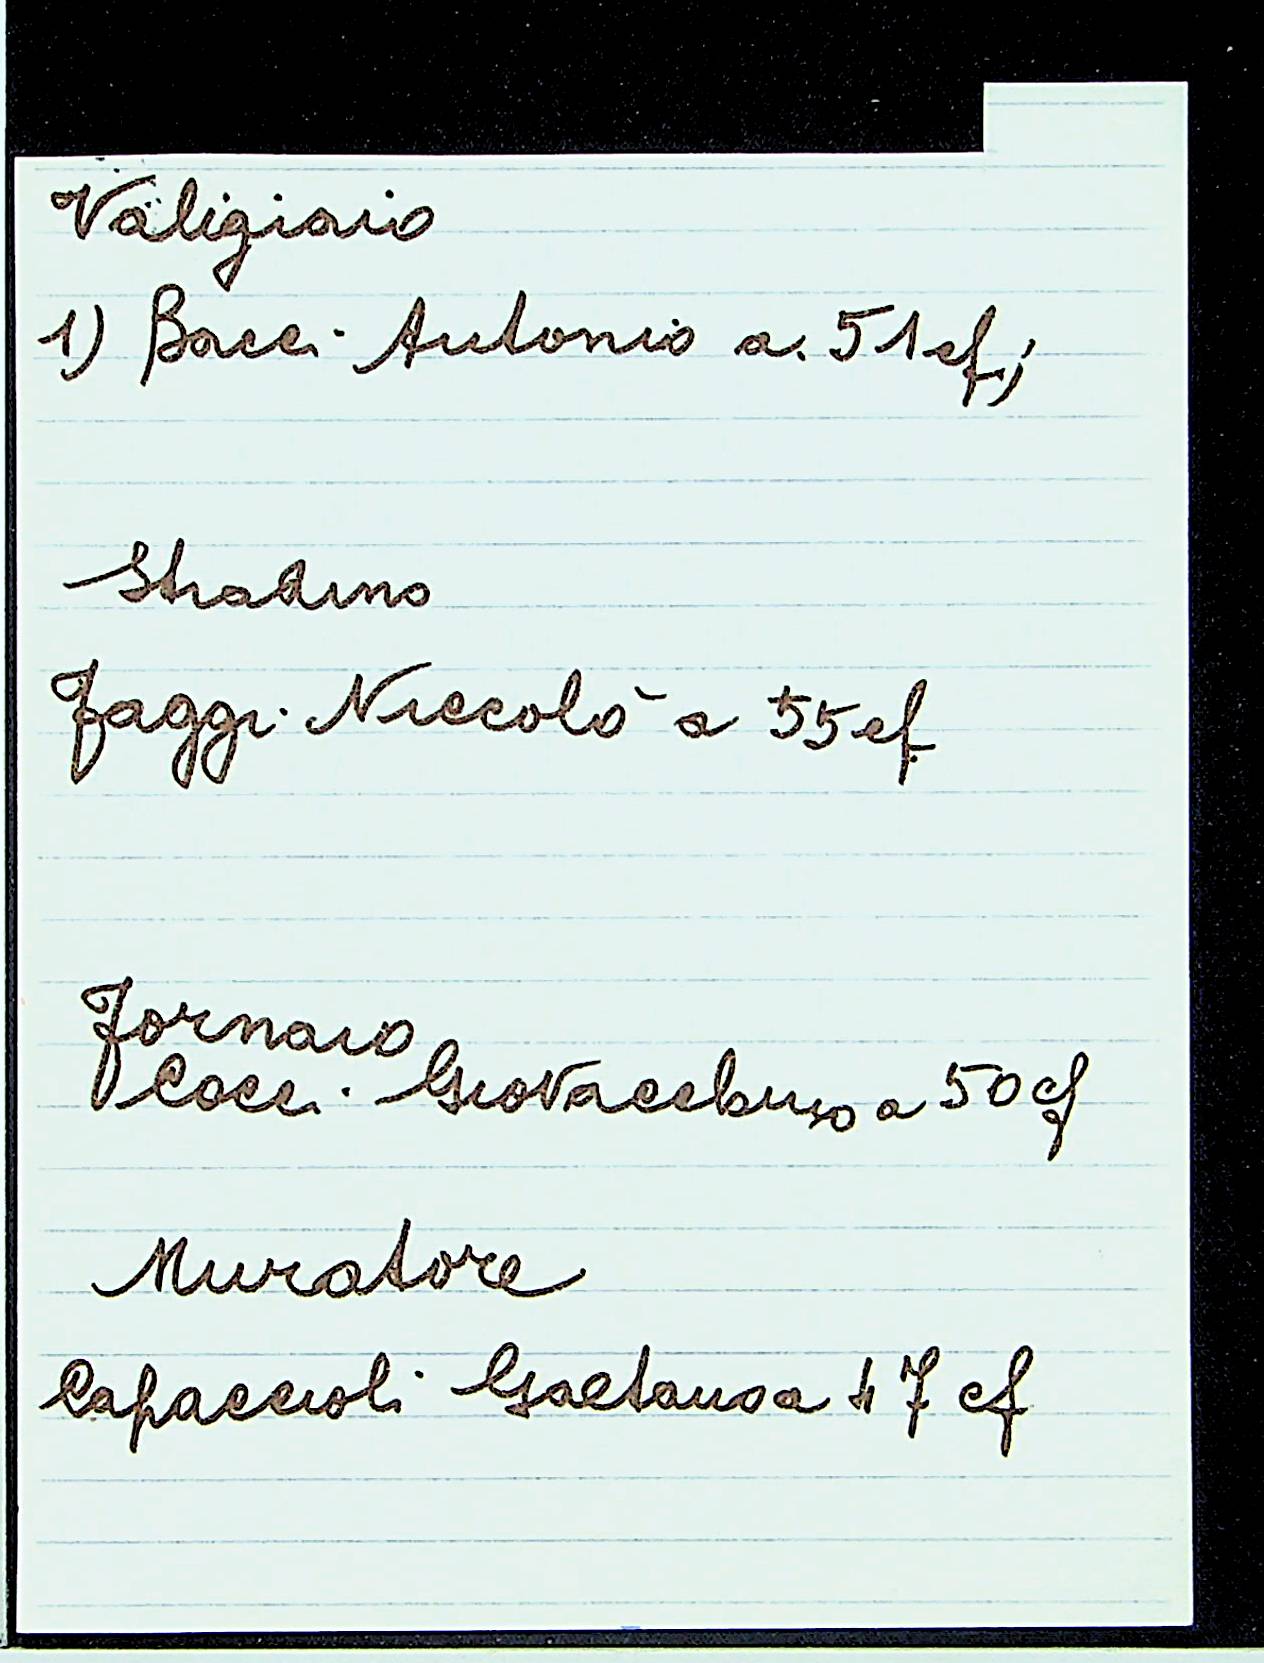 Valigiaio
1) Bacci Antonio a. 51 cf;
Stradino
Faggi Niccolò a 55 cf.
Fornaio
Cocci Giovacchino a 50 cf
Muratore
Capaccioli Gaetano a 47 cf